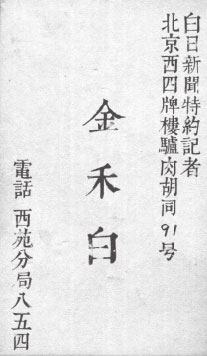 白日新聞特約記者
北京西四牌樓驢肉胡同91号
金禾白
電話 西苑分局八五四